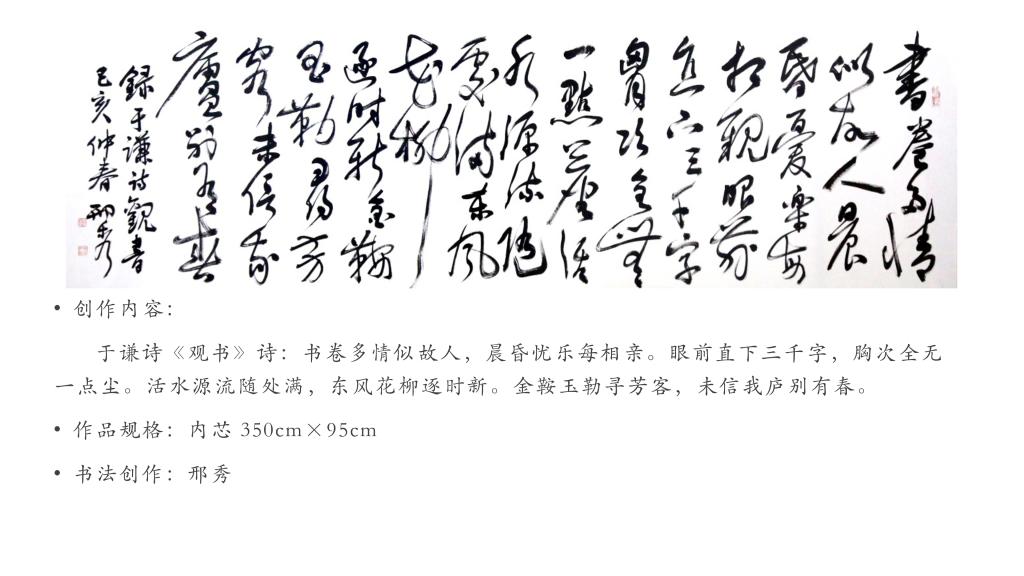 書卷多情
似故人晨
昏憂樂每
相親眼前
直下三千字
胷次全無
一點塵活
水源流随
處滿東風
花柳
逐时新金鞍
玉勒尋芳
客未信我
廬別有春
録于谦诗觀書
己亥仲春邢秀
• 创作内容：
于谦诗《观书》诗：书卷多情似故人，晨昏忧乐每相亲。眼前直下三千字，胸次全无
一点尘。活水源流随处满，东风花柳逐时新。金鞍玉勒寻芳客，未信我庐别有春。
• 作品规格：内芯 350cm×95cm
• 书法创作：邢秀